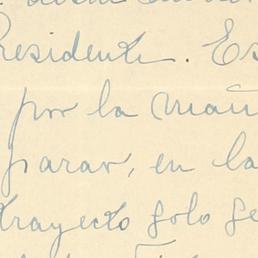 Presidente. Es
por la mañ
parar, en la
trayecto solo se